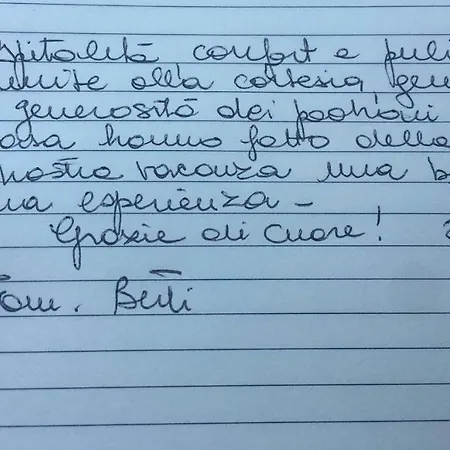 spitalità confort e puli
unite alla cortesia, gen
generosità dei padroni
casa hanno fatto della
nostra vacanza una b
na esperienza -
Grazie di cuore!
am. Berti